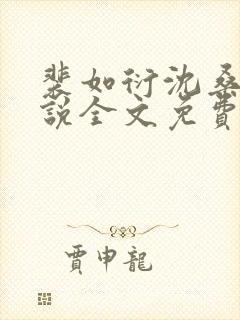 裴如衍沈桑
說全文免費
賈申龍